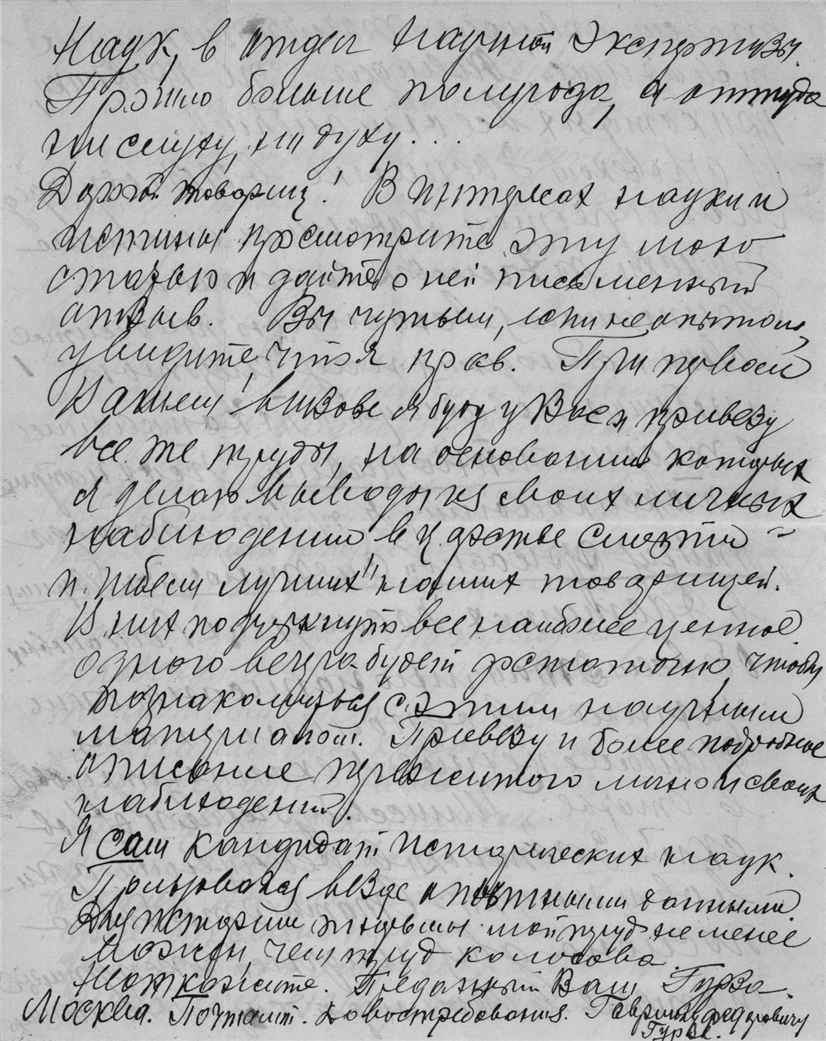 Наук, в отдел научной экспертизы.
Прошло больше полугода, а оттуда
ни слуху, ни духу...
Дорогой товарищ! В интересах науки и
истины просмотрите эту мою
статью и дайте о ней письменный
отзыв. Вы чутьем, если не опытом,
увидите что я прав. При первом
Вашем вызове я буду у Вас и привезу
все те труды, на основании которых
я делаю выводы из своих личных
наблюдений в царстве смерти
и гибели лучших наших товарищей.
В них подчеркнуто все наиболее ценное
одного вечера будет достаточно, чтобы
познакомиться с этим научным
материалом. Привезу и более подробное
описание пережитого мною и своих
наблюдений.
Я сам кандидат исторических наук.
Пользовался везде опытными данными.
Для истории мой труд не менее
важен, чем труд Колосова
Не откажите. Преданный Ваш Гурва.
Москва. Почтамт. Довостребования. Гавриилу Федоровичу
Гурве.